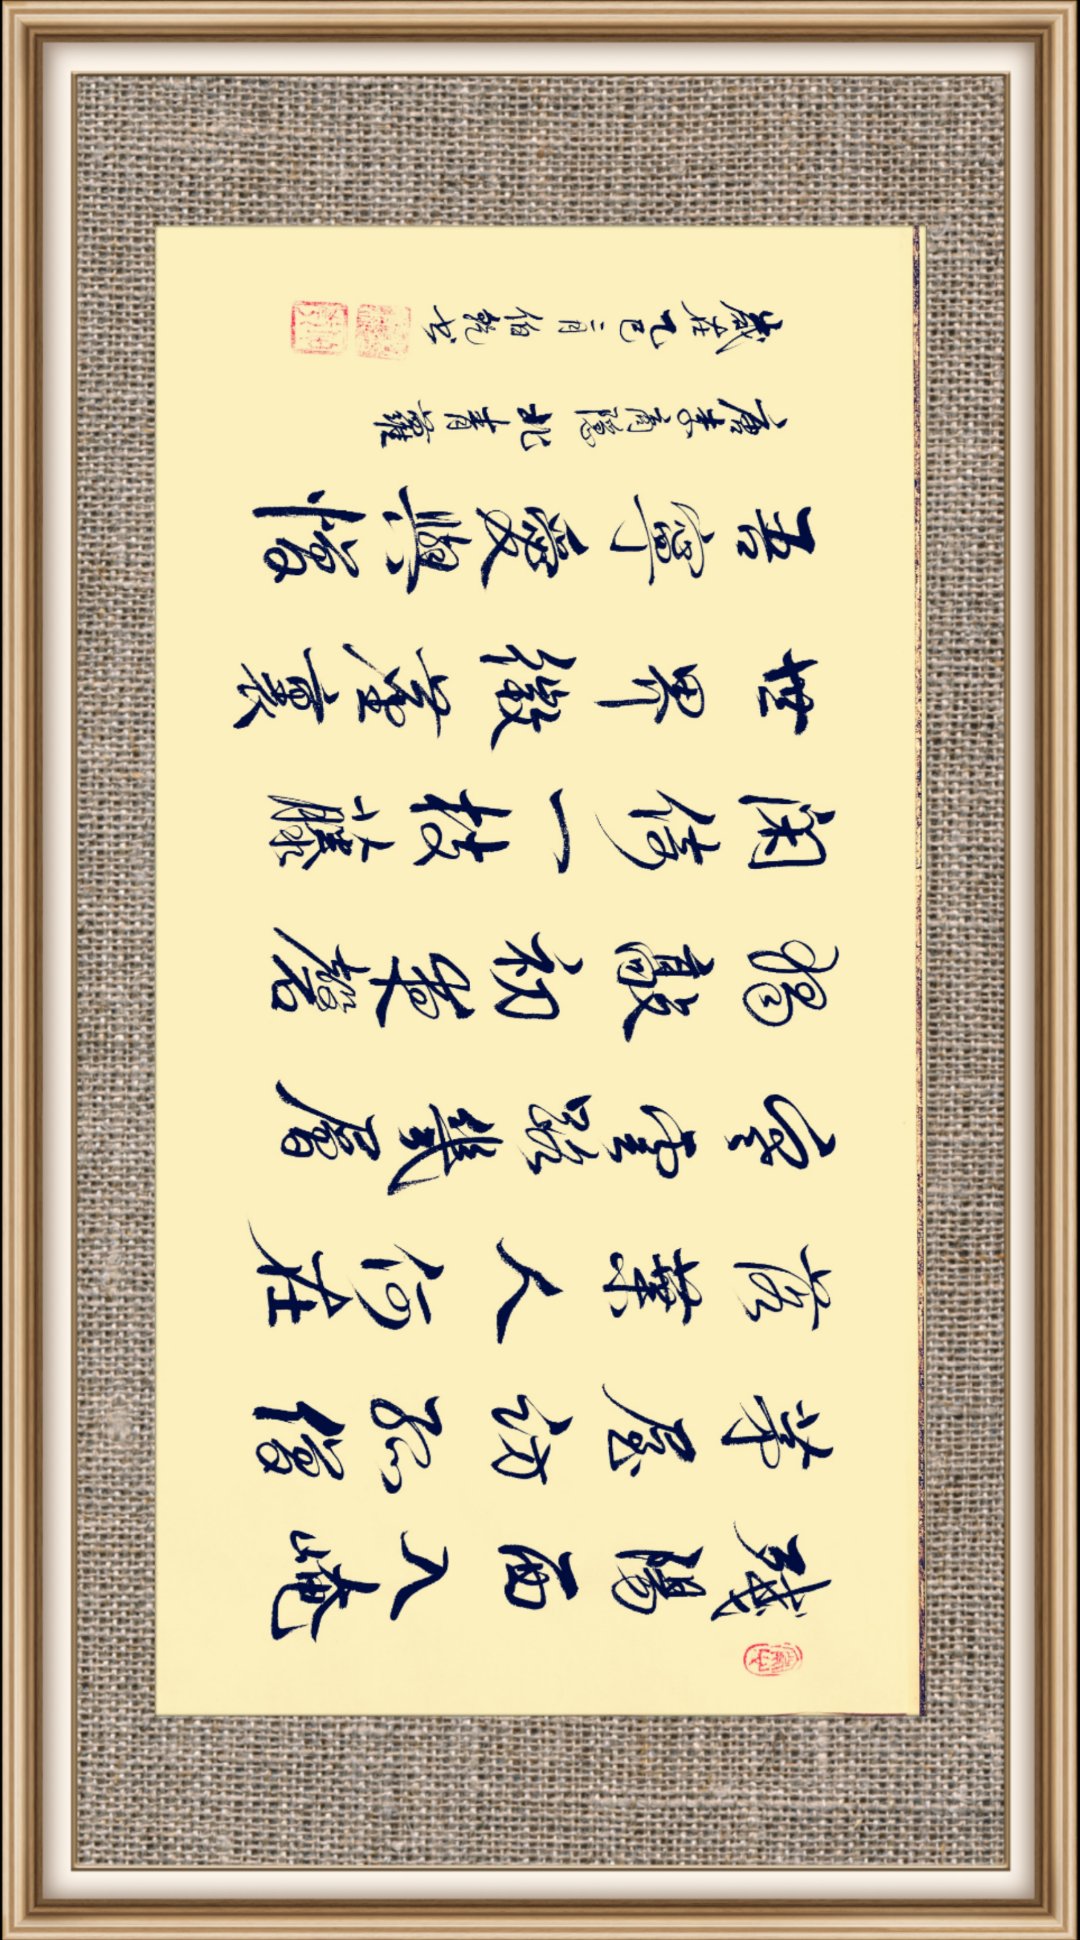 残陽西入崦
茅屋访孤僧
落葉人何在
寒雲路幾層
獨敲初夜磬
闲倚一枝藤
世界微塵裏
吾寧愛與憎
唐李商隐北青蘿
歲在乙巳二月伯乾书